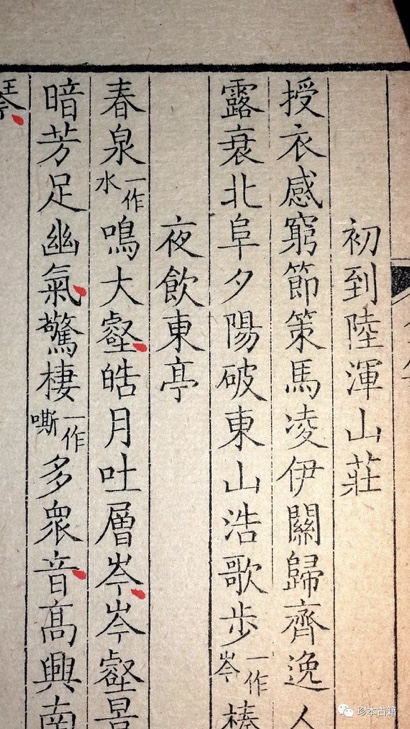 初到陸渾山莊
授衣感窮節策馬凌伊關歸齊逸人
露衰北阜夕陽破東山浩歌步一作岑榛
夜飲東亭
春泉一作水鳴大壑皓月吐層岑岑壑景
暗芳足幽氣驚棲一作嘶多衆音高興南
珍本古籍